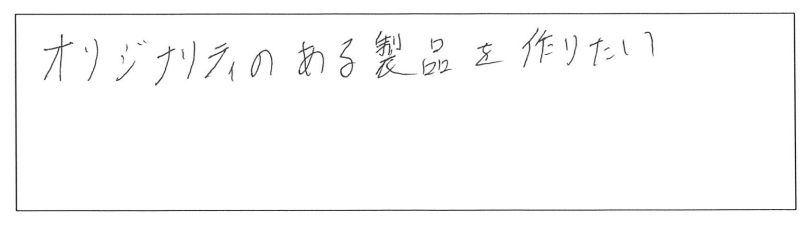 オリジナリティのある製品を作りたい